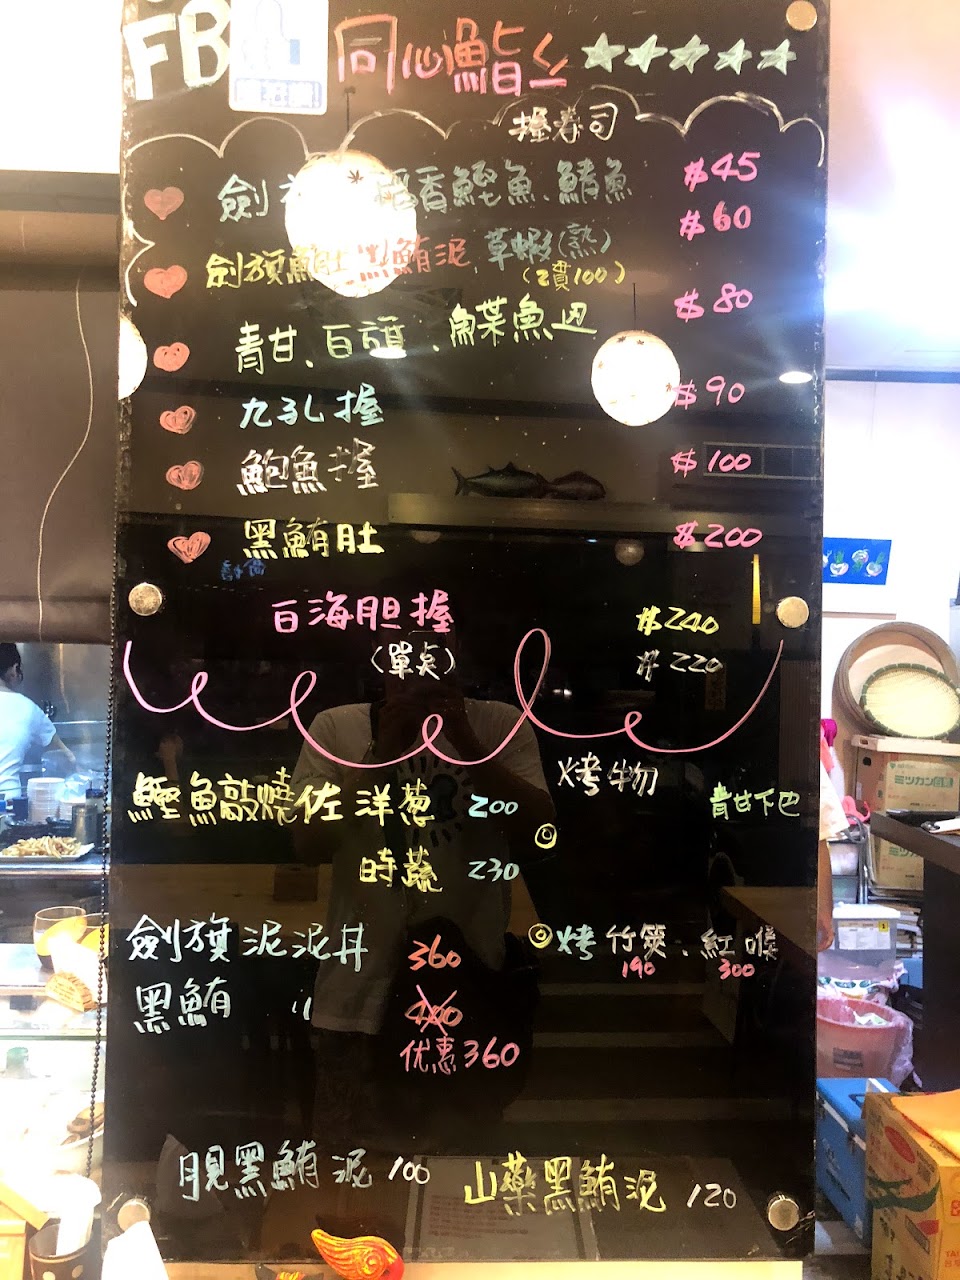 FB 同心鮨 ☆☆☆☆☆
握壽司
劍 香鰹魚、鯖魚 $45
$60
劍旗鮪肚 鮪泥 草蝦(熟)
(2貫100)
$80
青甘、白頭、鰈魚边
$90
九孔握
鮑魚握 $100
黑鮪肚 $200
白海胆握 $240
(單点) $220
烤物
鰹魚敲燒佐洋葱 200 青甘下巴
時蔬 230
劍旗泥泥丼 360 烤竹筴、紅喉
190 300
黑鮪 〃 400
优惠360
月見黑鮪泥 100
山藥黑鮪泥 120
ミツカン
ミツカン